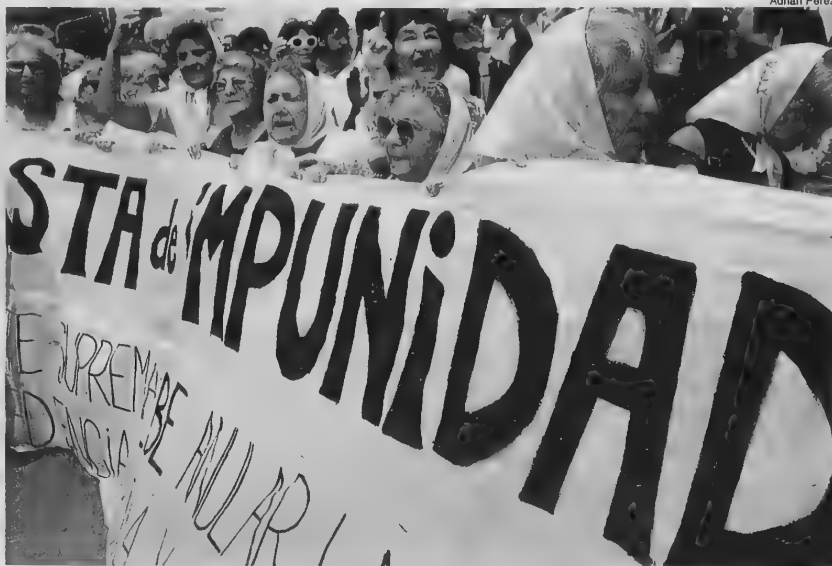 Adrián Pérez
STA de iMPUNiDAD
E SUPREMA BE ANULAR LA
DENCIA